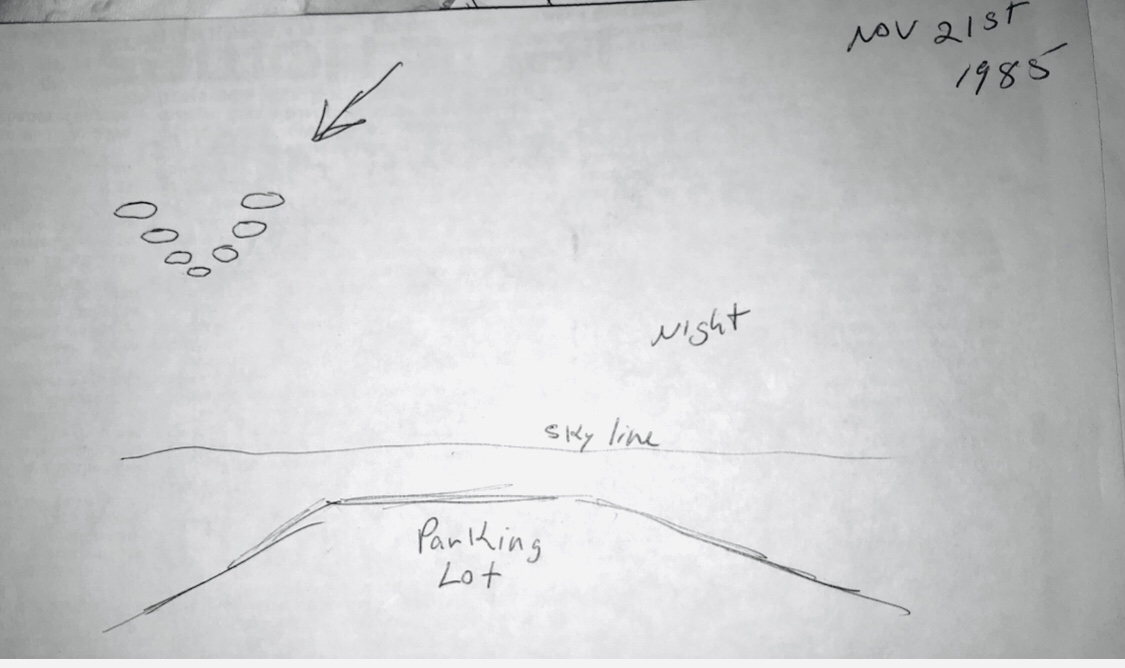 NOV 21st
1985
Night
sky line
Parking
Lot